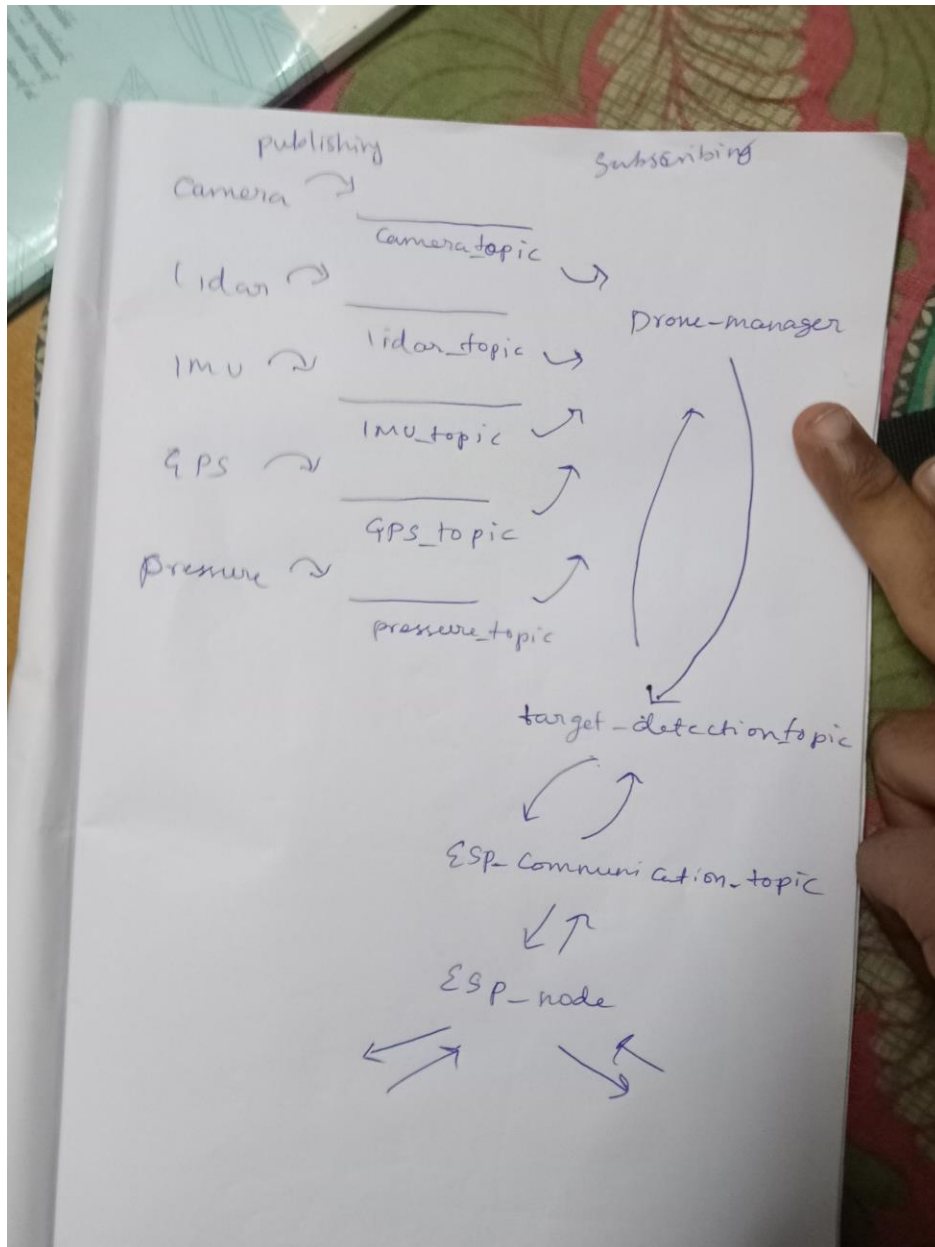 publishing
Subscribing
Camera
Camera_topic
Lidar
Drone-manager
lidar_topic
IMU
IMU_topic
GPS
GPS_topic
pressure
pressure_topic
target-detection_topic
ESP_Communication_topic
ESP_node